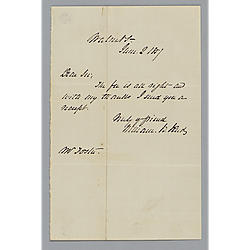 Walnut St
June 2 1857
Dear Sir,
The fee is all right and
with my thanks I send you a
receipt.
Truly yr friend
William B.
Mr Foster.